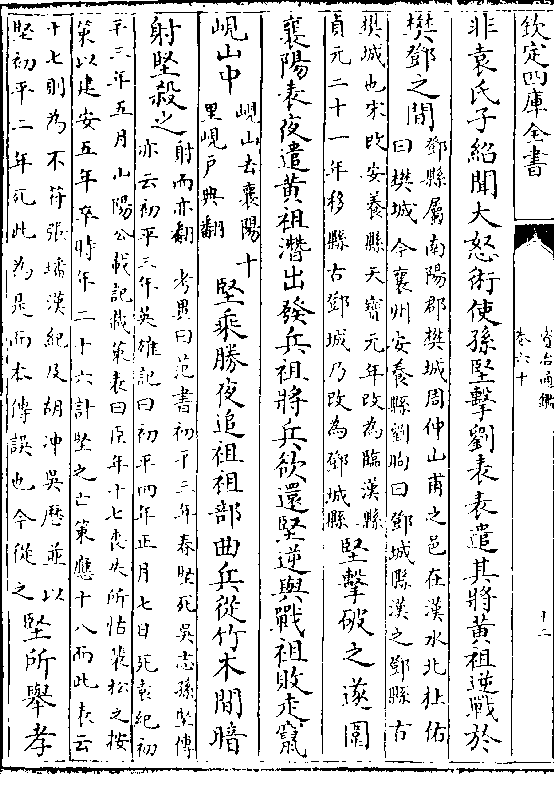 欽定四庫全書
資治通鑑
卷六十
十二
非袁氏子紹聞大怒術使孫堅擊劉表表遣其將黃祖逆戰於
樊鄧之間
鄧縣屬南陽郡樊城周仲山甫之邑在漢水北杜佑
曰樊城今襄州安養縣劉昫曰鄧城縣漢之鄧縣古
樊城也宋改安養縣天寶元年改為臨漢縣
貞元二十一年移縣古鄧城乃改為鄧城縣
堅擊破之遂圍
襄陽表夜遣黃祖潛出發兵祖將兵欲還堅逆與戰祖敗走竄
峴山中
峴山去襄陽十
里峴戶典翻
堅乘勝夜追祖祖部曲兵從竹木間暗
射堅殺之
射而亦翻 考異曰范書初平三年春堅死吳志孫堅傳
亦云初平三年英雄記曰初平四年正月七日死袁紀初
平三年五月山陽公載記載策表曰臣年十七喪失所怙裴松之按
策以建安五年卒時年二十六計堅之亡策應十八而此表云
十七則為不符張璠漢紀及胡沖吳歷並以
堅初平二年死此為是而本傳誤也今從之
堅所舉孝